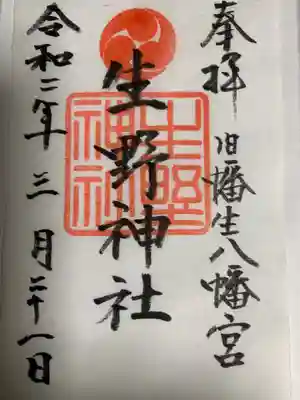 奉拝 旧幡生八幡宮
生野神社
令和二年三月二十一日
生野神社